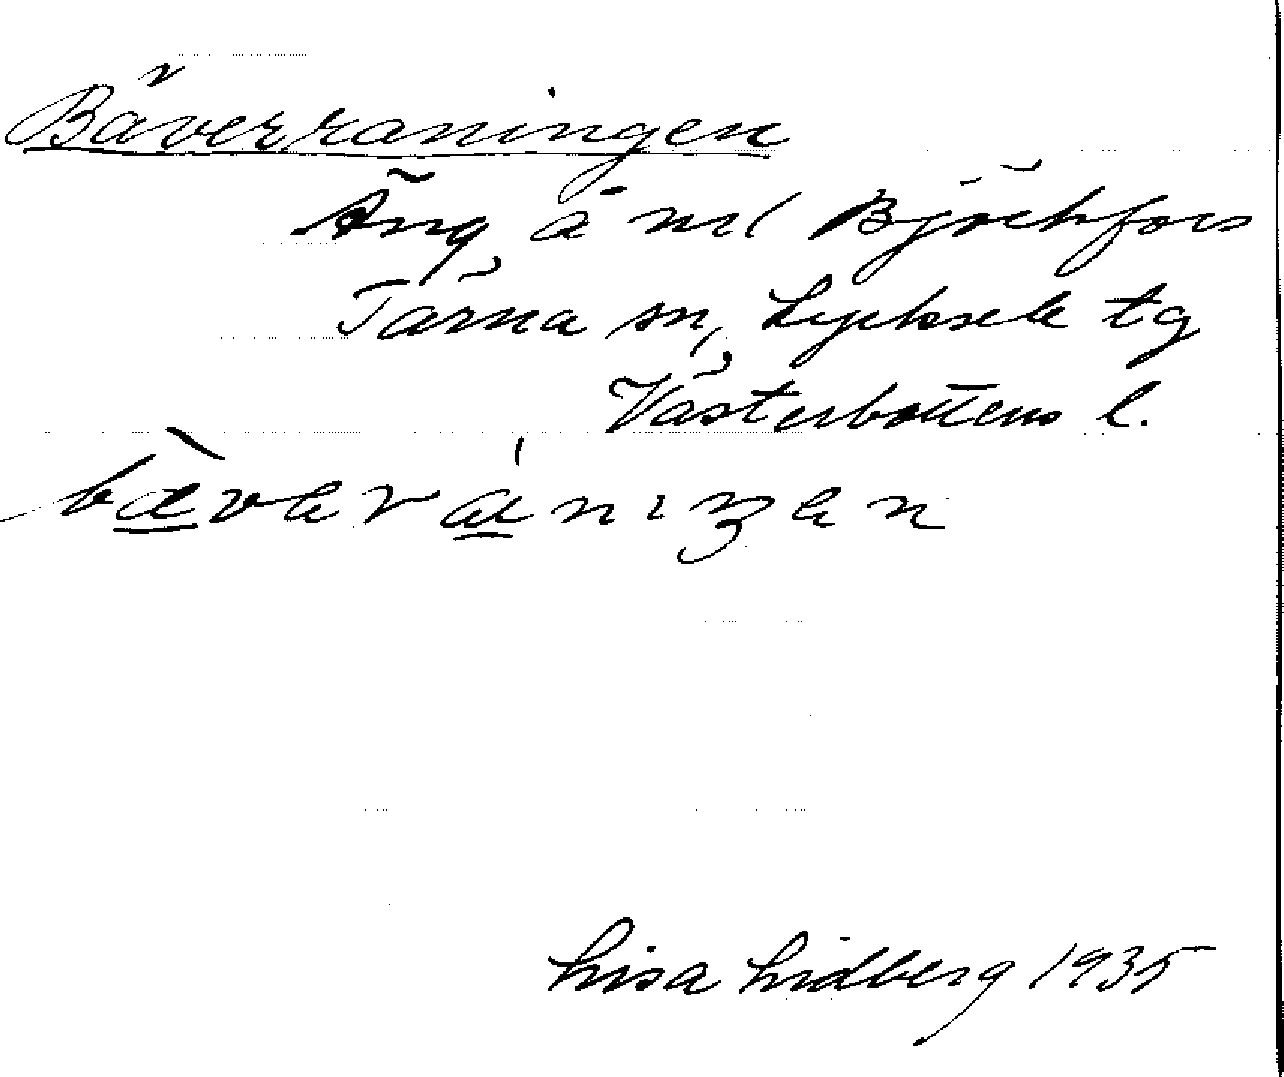 Bäverraningen
Äng å nr 1 Björkfors
Tärna sn, Lycksele tg
Västerbottens l.
bæveræniŋen
Lisa Lidberg 1935